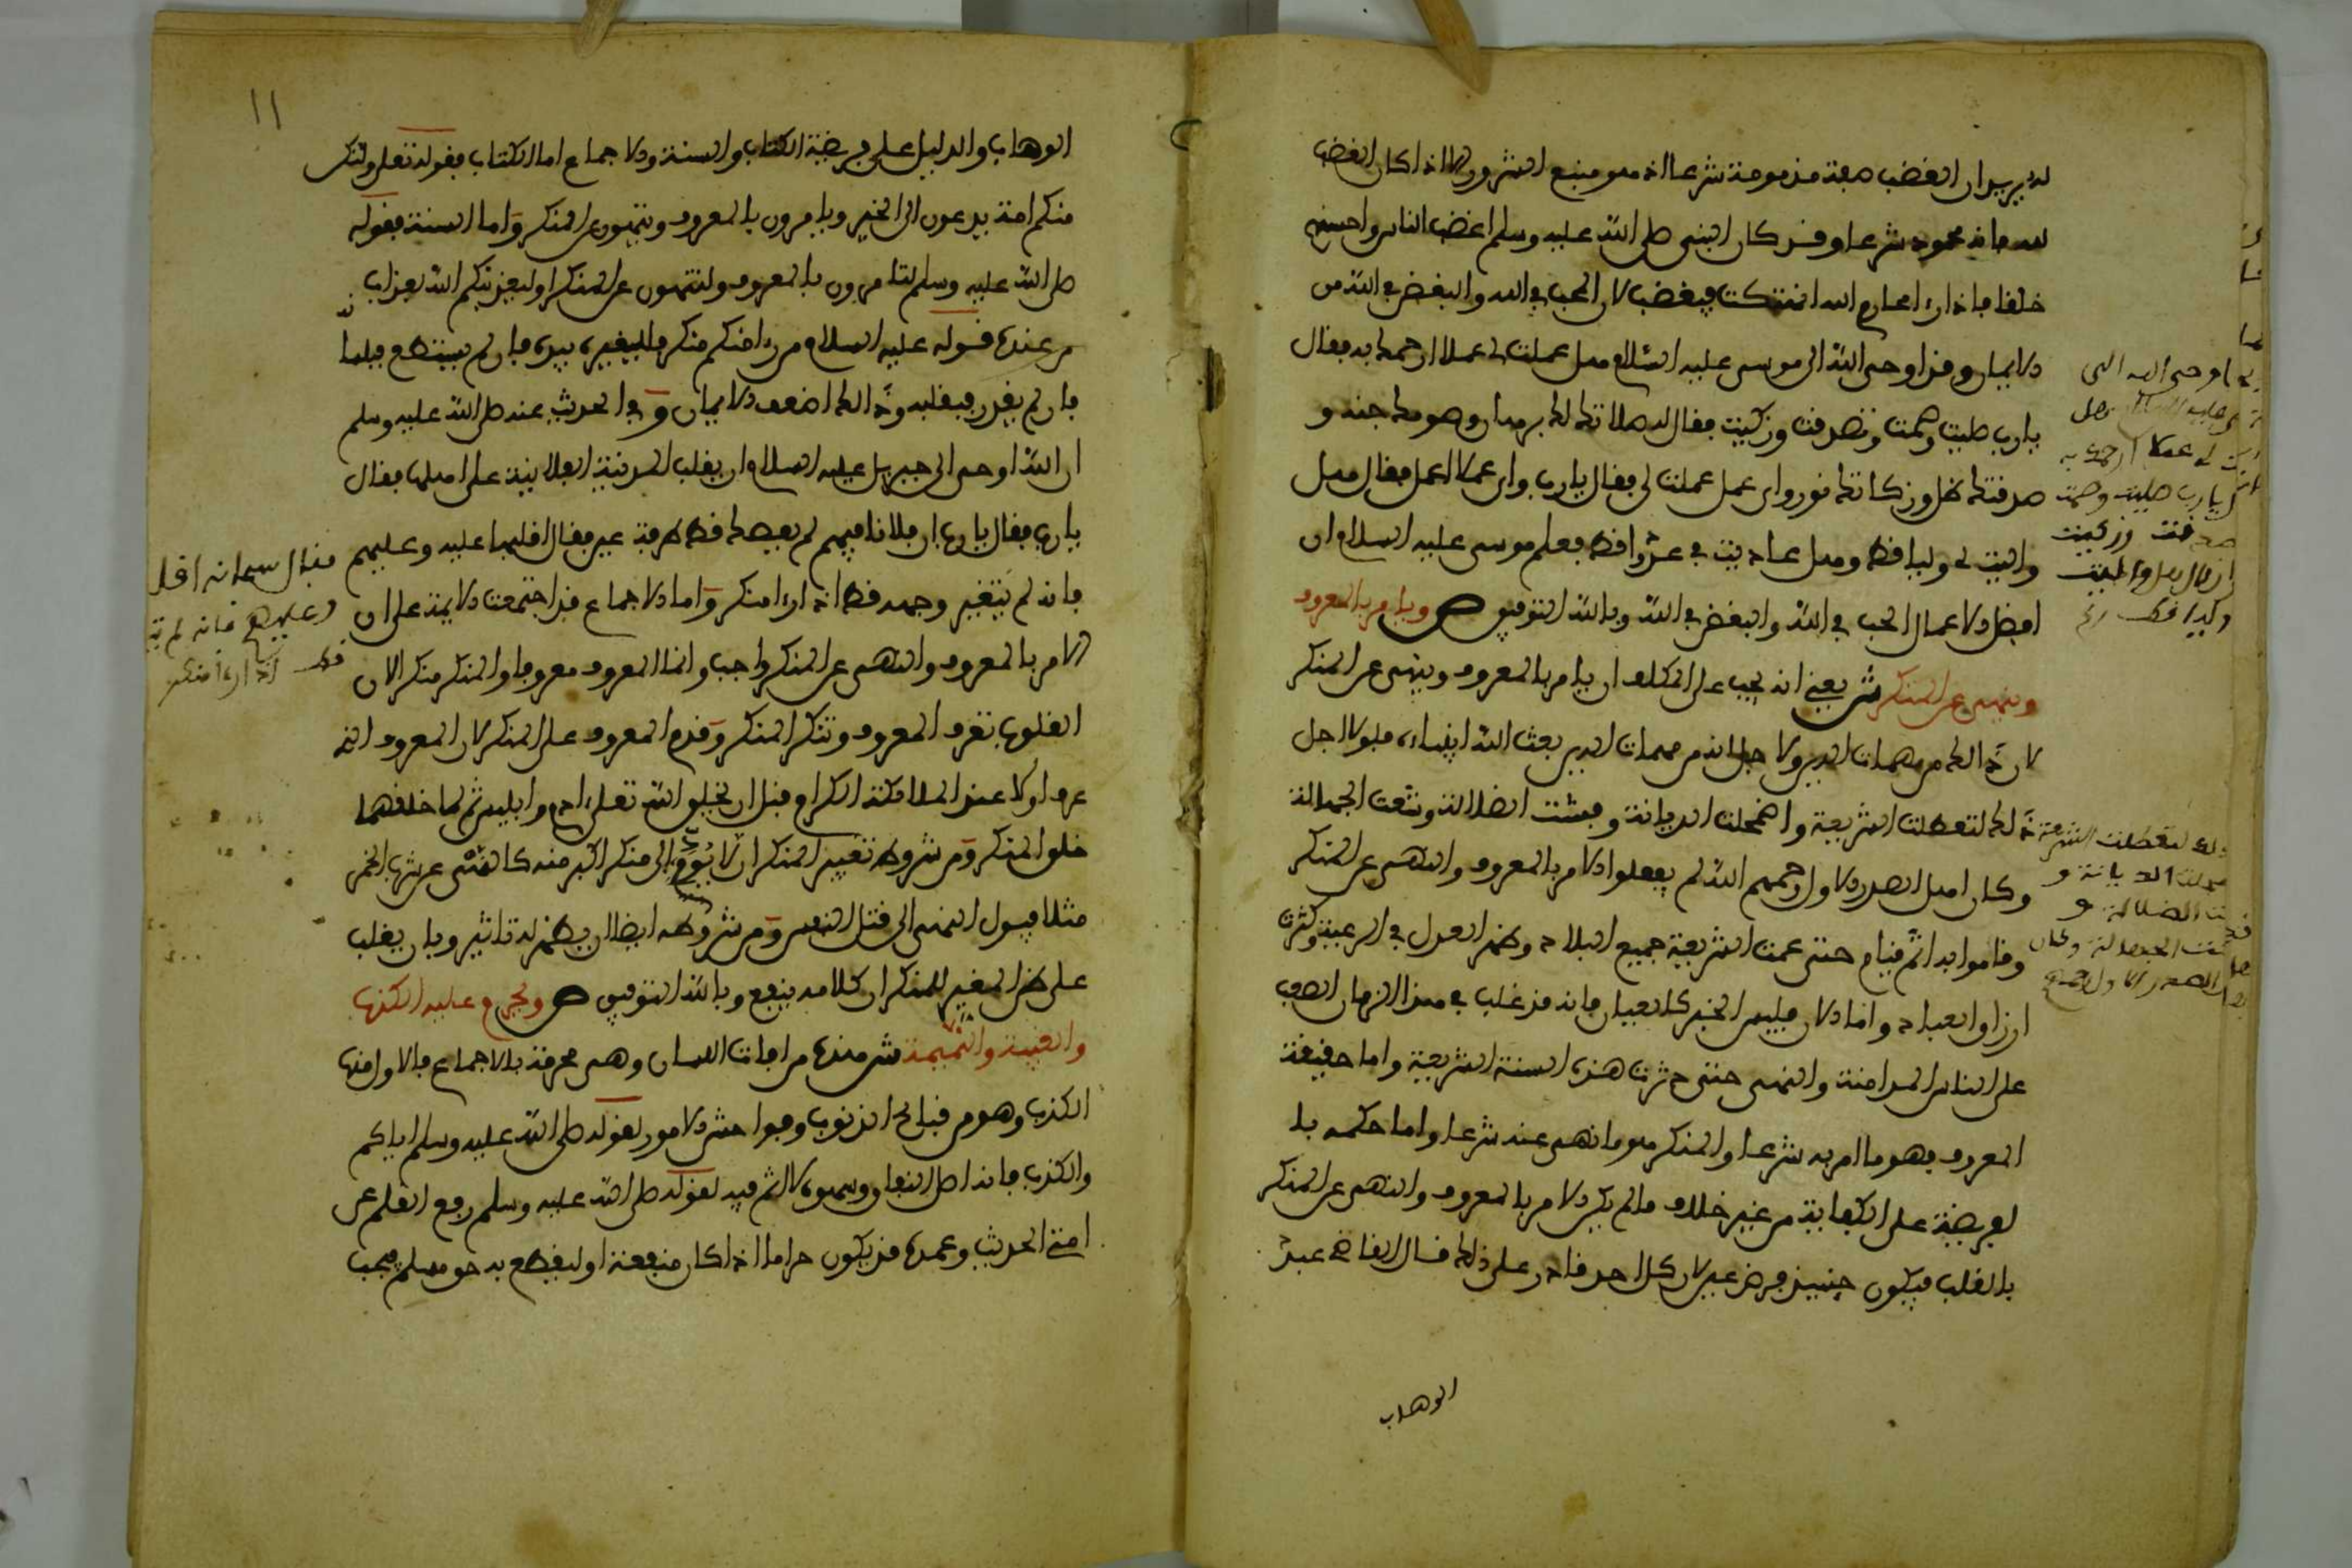 له يريد ان الغضب صفة مذمومة شرعا اذ هو منبع الشرور الا اذا كان الغضب
لله فانه محمود شرعا وقد كان النبي صلى الله عليه وسلم اغضب الناس واحسنهم
خلقا فاذا رءا محارم الله انتهكت فيغضب لان الحب في الله والبغض في الله من
الايمان وقد اوحى الله الى موسى عليه السلام هل عملت لي عملا ارحمك به فقال
يا رب صليت وصمت وتصدقت وزكيت فقال له صلاتك لك برهان وصومك جنة و
صدقتك ظل وزكاتك نور واي عمل عملت لي فقال يا رب واي عمل اعمل فقال هل
واليت لي وليا قط وهل عاديت لي عدوا قط فعلم موسى عليه السلام ان
افضل الاعمال الحب في الله والبغض في الله وبالله التوفيق ص ويامر بالمعروف
وينهى عن المنكر ش يعني انه يجب على المكلف ان يامر بالمعروف وينهى عن المنكر
لان ذالك من مهمات الدين ولاجل انه من مهمات الدين بعث الله انبياءه فلولا اجل
ذلك لتعطلت الشريعة واضمحلت الديانة وفشت الضلالة وشعت الجهالة
وكان اهل الصدر الاول رحمهم الله لم يغفلوا الامر بالمعروف والنهي عن المنكر
وقاموا به اتم قيام حتى عمت الشريعة جميع البلاد وظهر العدل في الرعية وكثرت
ارزاق العباد واما الان فليس الخبر كالعيان فانه قد غلب في هذا الزمان الصعب
على الناس المداهنة والتهمى حتى دثرت هذه السنة الشريعة واما حقيقة
المعروف فهو ما امر به شرعا والمنكر هو ما نهى عنه شرعا واما حكمه با
لفريضة على الكفاية من غير خلاف ما لم يكن الامر بالمعروف والنهي عن المنكر
بالقلب فيكون حينيذ فرض عين لان كل احد قادر على ذلك قال القاضي عبد
الوهاب
اوحى الله الى
عليه السلام هل
لي عملا ارحمك به
يا رب صليت وصمت
وزكيت
لتعطلت الشريعة
الديانة و
الضلالة و
الجهالة وكان
الصدر الاول رحمهم
١١
الوهاب والدليل على فرضية الكتاب والسنة والاجماع اما الكتاب فقوله تعلى ولتكن
منكم امة يدعون الى الخير ويامرون بالمعروف وينهون عن المنكر واما السنة فقوله
صلى الله عليه وسلم لتامرون بالمعروف ولتنهون عن المنكر او ليعذبنكم الله بعذاب
من عنده قوله عليه السلام من رءا منكم منكرا فليغيره بيده فان لم يستطع فبلسا
نه
فان لم يقدر فبقلبه وذالك اضعف الايمان وفي الحديث عنه صلى الله عليه وسلم
ان الله اوحى الى جبريل عليه السلام ان يقلب المدينة الفلانية على اهلها فقال
يا رب فقال يا رب ان فلانا فيهم لم يعصك قط طرفة عين فقال اقلبها عليه وعليهم
فانه لم يتغير وجهه قط اذ رءا منكرا واما الاجماع فقد اجتمعت الايمة على ان
الامر بالمعروف والنهي عن المنكر واجب وانما المعروف معروفا والمنكر منكرا لان
القلوب تعرف المعروف وتنكر المنكر وقدم المعروف على المنكر لان المعروف انه
عرف اولا عند الملائكة الكرام قبل ان يخلق الله تعلى ادم وابليس ثم لما خلقهما
خلق المنكر ومن شروط تغيير المنكر ان لا يودي الى منكر اكبر منه كالنهي عن شرب الخمر
مثلا فيول النهي الى قتل النفس ومن شروطه ايضا ان يظهر له تاثير وبان يغلب
على ظن المغير للمنكر ان كلامه ينفع وبالله التوفيق ص ويحرم عليه الكذب
والغيبة والنميمة ش هذه من افات اللسان وهي محرمة بالاجماع فالاول منها
الكذب وهو من قبائح الذنوب وفواحش الامور لقوله صلى الله عليه وسلم اياكم
والكذب فانه اصل النفاق وسهوه لا اثم فيه لقوله صلى الله عليه وسلم رفع القلم عن
امتي الحديث وعمده قد يكون حراما اذا كان منفعة او ليقطع به حق مسلم فيجب
فقال سبحانه اقلبـ
وعليهم فانه لم يتـ
قط اذ رءا منكر